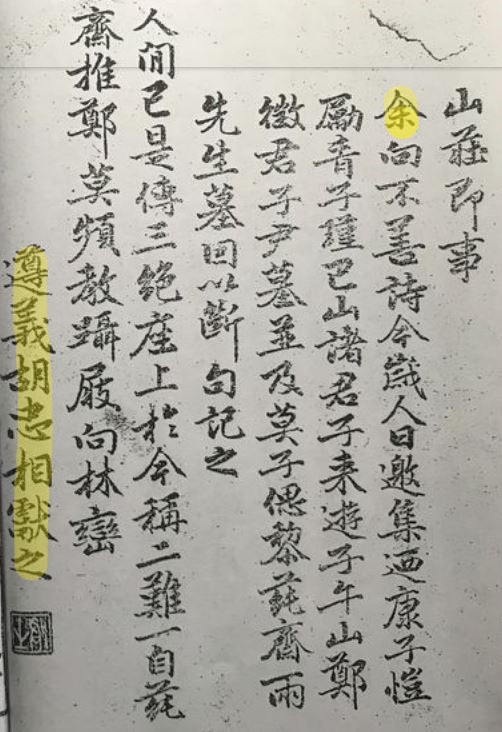 山莊即事
余向不善詩今歲人日邀集迺康子愷
勵香子謹巴山諸君子来遊子午山鄭
徵君子尹墓並及莫子偲黎蒓齋兩
先生墓因以斷句記之
人间已是傳三絶座上於今稱二難一自蒓
齋推鄭莫頻教躡屐向林巒
遵義胡忠相獻之